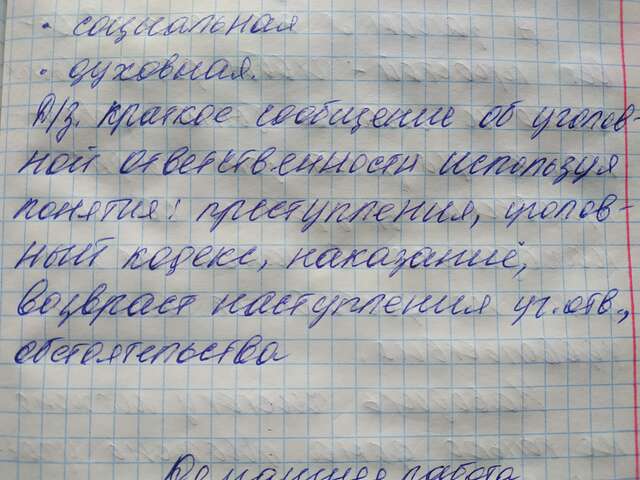 · социальная
· духовная.
Д/з. краткое сообщение об уголов-
ной ответственности используя
понятия: преступления, уголов-
ный кодекс, наказание,
возвраст наступления уг. отв.,
обстоятельства
Домашняя работа